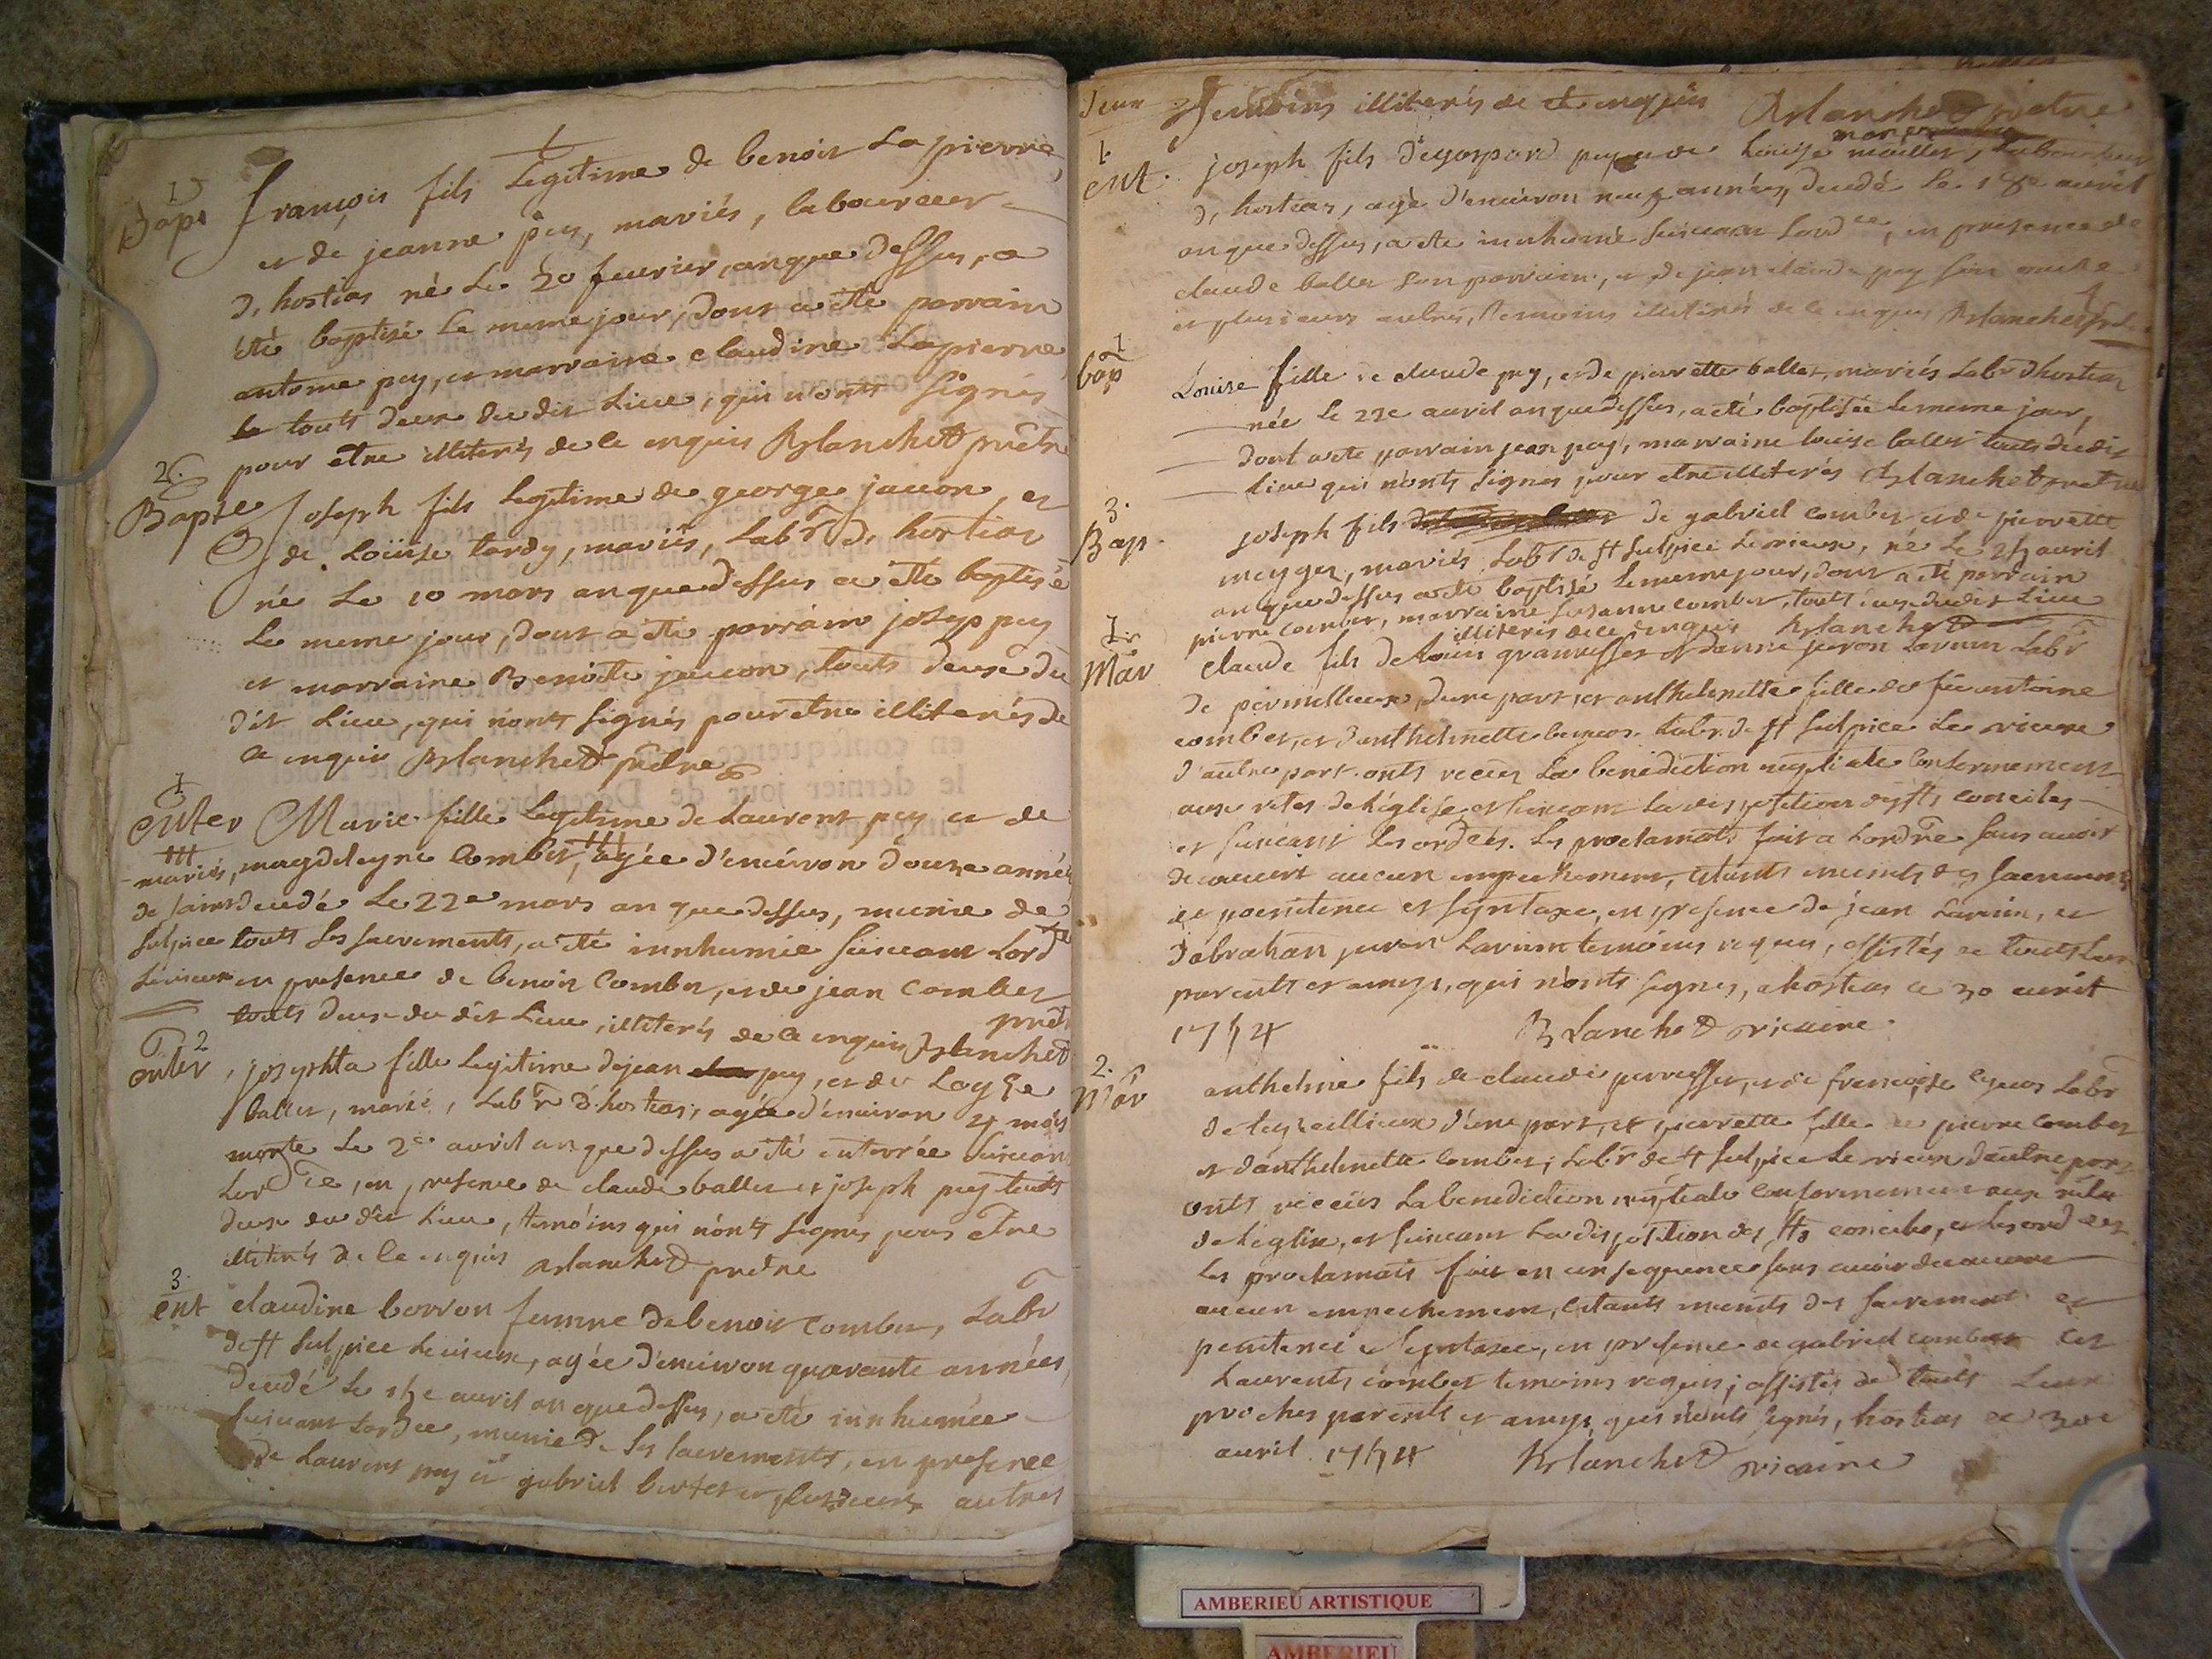 1
Bapt
françois fils Legitime de benoit La pierre,
et de jeanne pey, mariés, laboureur
d, hostias né Le 20 feuvrier, an que dessus, a
été baptisé Le meme jour, dont a été parrain
antoine pey, et marraine claudine Lapierre
touts deux du dit Lieu, qui n'onts signés
pour etre illiterés de ce enquis Blanchet prêtre
2.
Bapte
Joseph fils legitime de george jaccon, et
de Loüise tardy, mariés, Labr d, hostias
né Le 10 mars an que dessus a été baptisé
Le meme jour, dont a été parrain joseph pey
et marraine Benoite jaccon, touts deux du
dit Lieu, qui n'onts signés pour etre illiterés de
ce enquis Blanchet prêtre
1
enter
Marie fille Legitime de Laurent pey et de
mariés, magdeleyne Combet, agée d'environ douze années
de saint decedé Le 22e mars an que dessus, munie de
sulpice touts ses sacrements, a été innhumée suivant Lordce
Levieux en presence de benoit Combet, et de jean Combet
touts deux du dit Lieu, illiterés de ce enquis Blanchet prêt
2
enter
josephta fille Legitime de jean pey, et de Loyse
ballet, marié, Labr d'hostias, agée d'environ 4 mois
morte Le 2e avril an que dessus a été enterrée suivant
Lordce, en presence de claude ballet et joseph pey touts
deux du dit Lieu, temoins qui n'onts signés pour etre
illiterés de ce enquis Blanchet prêtre
3.
ent
claudine borron femme de benoit combet, Labr
de st sulpice Le vieux, agée d'environ quarante années,
decedé Le 15e avril an que dessus, a été innhumée
suivant Lordce, munie de ses sacrements, en presence
de Laurent pey et gabriel et plusieurs autres
temoins illiterés de ce enquis Blanchet prêtre
ent.
joseph fils de gaspard pey et de Louise mallet, Laboureur
d, hostias, agé d'environ neuf années, decedé Le 18e avril
an que dessus, a été innhumé suivant Lordce, en presence de
claude ballet son parrain, et de jean claude pey son oncle
et plusieurs autres, temoins illiterés de ce enquis Blanchet
1
bap
Louise fille de claude pey, et de pierrette ballet, mariés Labr d'hostias
née Le 22e avril an que dessus, a été baptisée Le meme jour,
dont a été parrain jean pey, marraine louise ballet touts du dit
lieu qui n'onts signés pour etre illiterés Blanchet prêtre
3.
Bap
joseph fils de gabriel combet et de pierrette
, mariés Labr de st sulpice Le vieux, né Le 25 avril
an que dessus a été baptisé Le meme jour, dont a été parrain
pierre Combet, marraine susanne combet, touts deux du dit Lieu
illiterés de ce enquis Blanchet
1r
Mar
claude fils de Louis et danne juron Lavenin Labr
de d'une part, et anthelmette fille de feu antoine
combet, et d'anthelmette Labr. de st sulpice Le vieux
d'autre part. onts reçeus La benediction nuptiale Conformement
aux rites de L'église et suivant La disposition des sts conciles
et suivant Les ordces. Les proclamats fait a Lordre sans avoir
decouvert aucun empechement, etants munits des sacrements
de poenitence et syntaxe, en presence de jean Lavenin, et
d'abraham juron Lavenin temoins requis, assistés de touts Leur
parents et amys, qui n'onts signés, a hostias ce 30 avril
1754
Blanchet vicaire
2.
Mar
anthelme fils de claude , et de françoise Labr
de d'une part, et pierrette fille de pierre Combet
et d'anthelmette Combet, Labr de st sulpice Le vieux d'autre part
onts reçeus La benediction nuptiale conformement aux rites
de L'eglise, et suivant La disposition des sts conciles, et Les ordces
Les proclamats fait en consequence sans avoir decouvert
aucun empechement, etants munits des sacrements de
penitence et syntaxe, en presence de gabriel combet et
Laurents combet temoins requis, assistés de touts Leur
proches parents et amys, qui n'onts signés, hostias ce 30e
avril 1754
Blanchet vicaire
AMBERIEU ARTISTIQUE
AMBERIEU